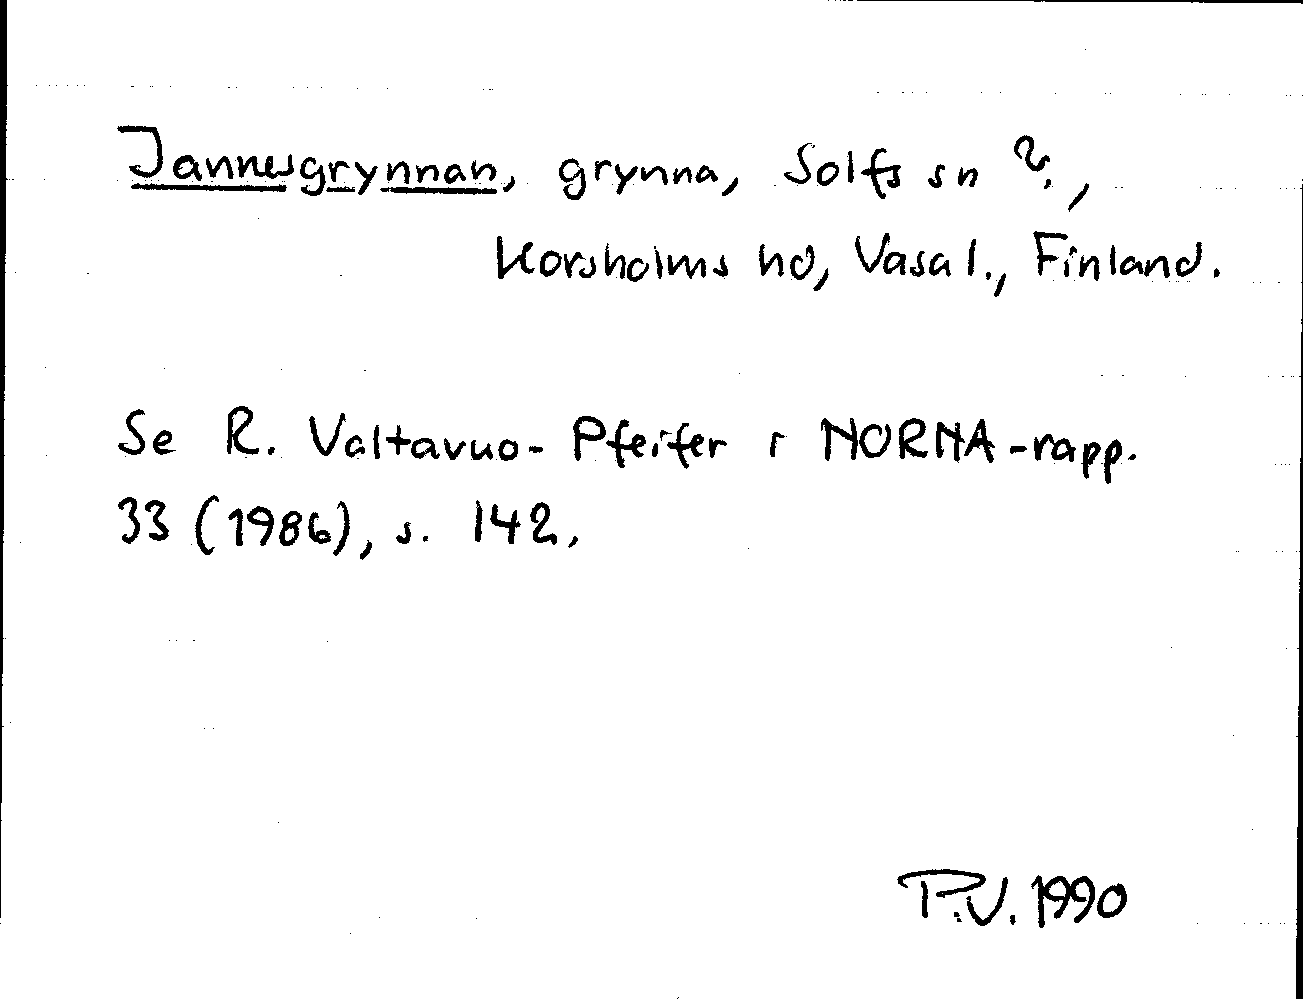 Jannesgrynnan, grynna, Solfs sn ?,
Korsholms hd, Vasa l., Finland.
Se R. Valtavuo-Pfeifer i NORNA-rapp.
33 (1986), s. 142.
P.V. 1990